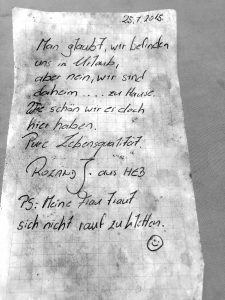 25.7.2015
Man glaubt, wir befinden
uns in Urlaub,
aber nein, wir sind
daheim ..... zu Hause.
Wie schön wir es doch
hier haben.
Pure Lebensqualität.
ROLAND J. aus HEB
PS: Meine Frau traut
sich nicht rauf zu klettern.